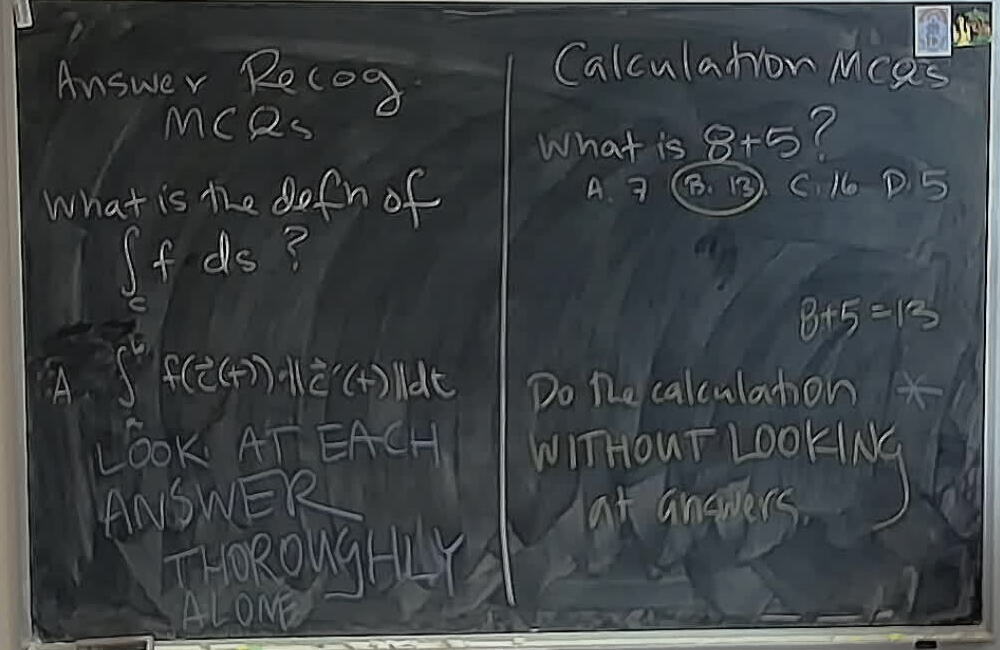 Answer Recog.
MCQs
What is the defn of
∫_C f ds ?
A. ∫_a^b f(c⃗(t))·||c⃗'(t)||dt
LOOK AT EACH
ANSWER
THOROUGHLY
ALONE
Calculation MCQs
What is 8+5?
A. 7 B. 13. C. 16 D. 5
8+5=13
Do the calculation *
WITHOUT LOOKING
at answers.